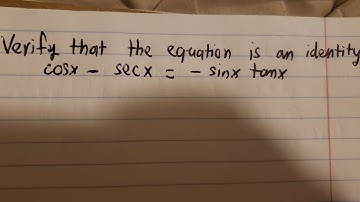 Verify that the equation is an identity
cosx - secx = - sinx tanx